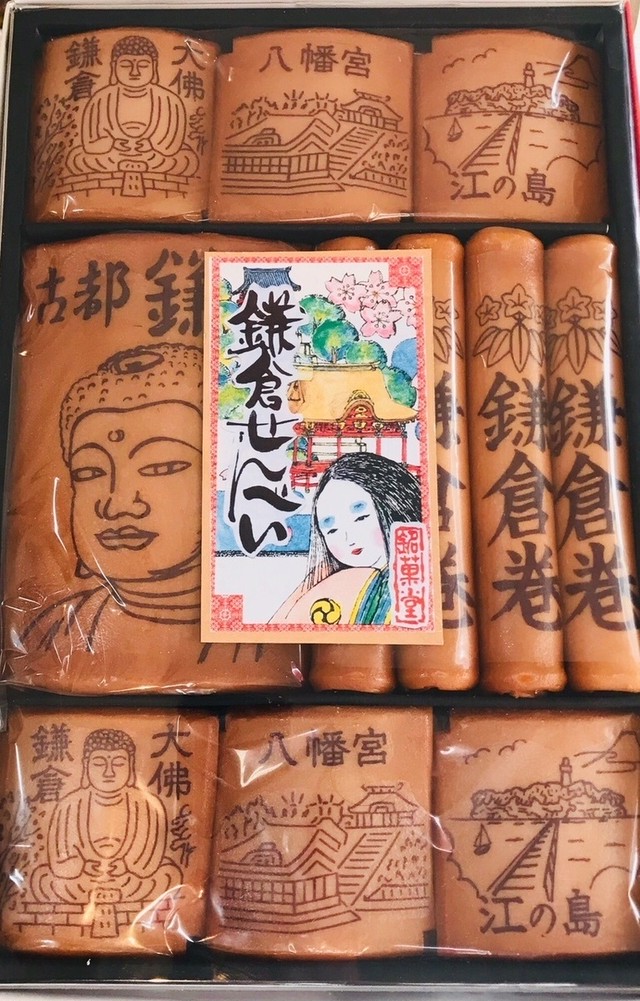 鎌倉
大佛
八幡宮
江の島
古都 鎌
鎌倉せんべい
銘菓堂
鎌倉巻
鎌倉巻
鎌倉巻
鎌倉
大佛
八幡宮
江の島